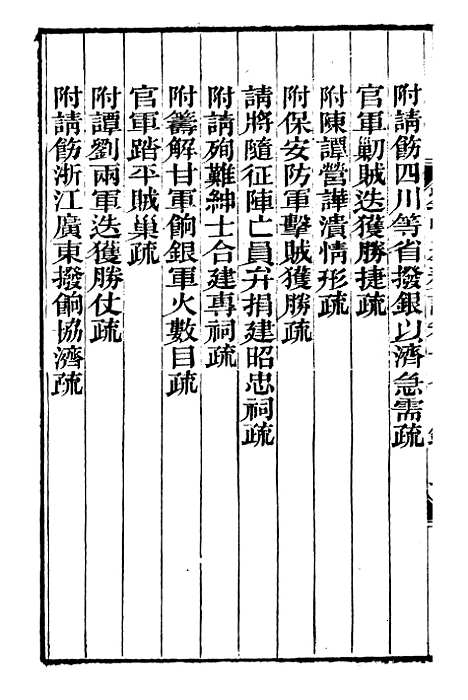 附請飭四川等省撥銀以濟急需疏
官軍剿賊迭獲勝捷疏
附陳譚營譁潰情形疏
附保安防軍擊賊獲勝疏
請將隨征陣亡員弁捐建昭忠祠疏
附請殉難紳士合建專祠疏
附籌解甘軍餉銀軍火數目疏
官軍踏平賊巢疏
附譚劉兩軍迭獲勝仗疏
附請飭浙江廣東撥餉協濟疏